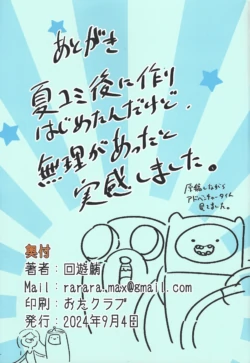 あとがき
夏コミ後に作り
はじめたんだけど、
無理があったと
実感しました。
しながら
アドベンチャータイム
見てました。
奥付
著者：回遊鮪
Mail：rarara.max@gmail.com
印刷：おたクラブ
発行：2024年9月4日